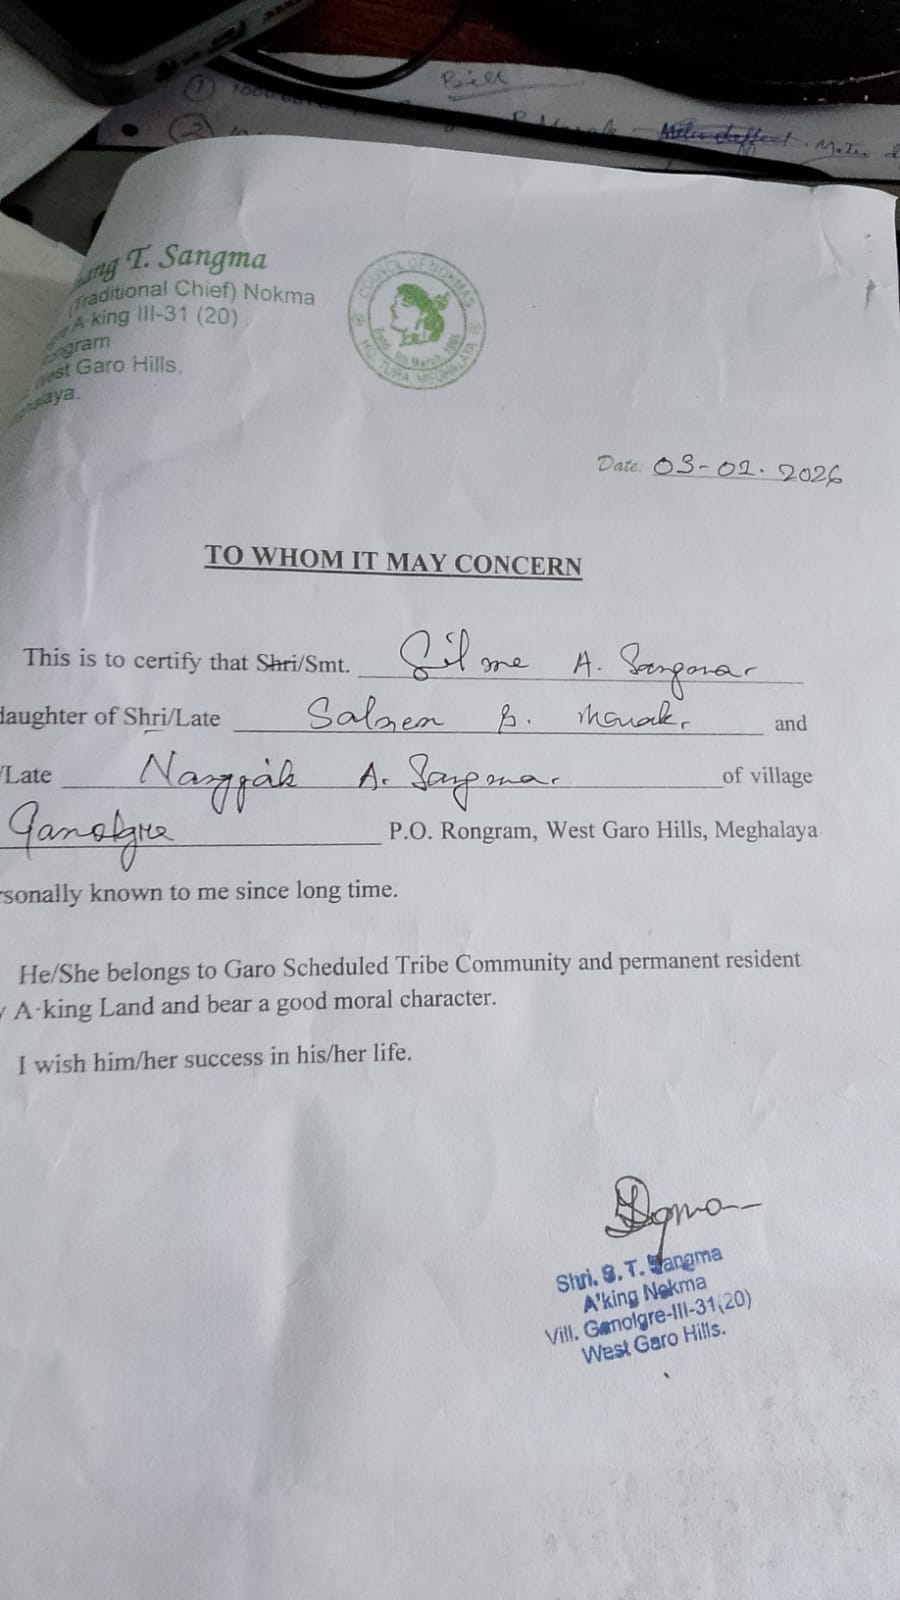 Bill
①
②
ang T. Sangma
(Traditional Chief) Nokma
A·king III-31 (20)
ongram
West Garo Hills,
alaya.
COUNCIL OF NOKMAS
HQ. TURA MEGHALAYA
Date: 03-02. 2026
TO WHOM IT MAY CONCERN
This is to certify that Shri/Smt. Silme A. Sangma
daughter of Shri/Late Salsen B. Marak, and
/Late A. Sangma. of village
Ganolgre P.O. Rongram, West Garo Hills, Meghalaya
rsonally known to me since long time.
He/She belongs to Garo Scheduled Tribe Community and permanent resident
y A·king Land and bear a good moral character.
I wish him/her success in his/her life.
Shri. S. T. Sangma
A'king Nokma
Vill. Ganolgre-III-31(20)
West Garo Hills.